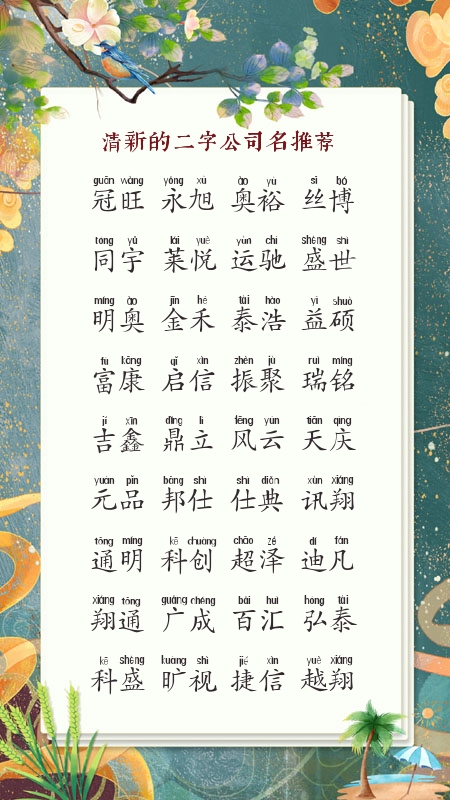 清新的二字公司名推荐
guān wàng yóng xù ào yù sī bó
冠旺 永旭 奥裕 丝博
tóng yǔ lái yuè yùn chí shèng shì
同宇 莱悦 运驰 盛世
míng ào jīn hé tài hào yì shuò
明奥 金禾 泰浩 益硕
fù kāng qǐ xìn zhèn jù ruì míng
富康 启信 振聚 瑞铭
jí xīn dǐng lì fēng yún tiān qìng
吉鑫 鼎立 风云 天庆
yuán pǐn bāng shì shì diǎn xùn xiáng
元品 邦仕 仕典 讯翔
tōng míng kē chuàng chāo zé dí fán
通明 科创 超泽 迪凡
xiáng tōng guǎng chéng bǎi huì hóng tài
翔通 广成 百汇 弘泰
kē shèng kuàng shì jié xìn yuè xiáng
科盛 旷视 捷信 越翔